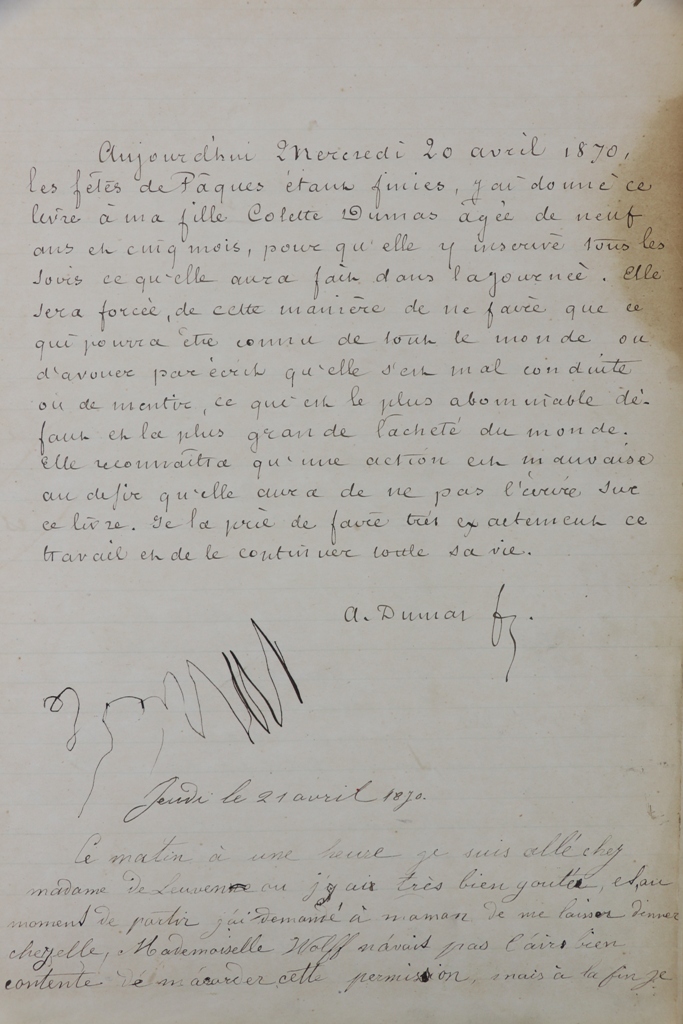 Aujourd'hui Mercredi 20 avril 1870,
les fêtes de Pâques étant finies, j'ai donné ce
livre à ma fille Colette Dumas âgée de neuf
ans et cinq mois, pour qu'elle y inscrive tous les
soirs ce qu'elle aura fait dans la journée. Elle
sera forcée, de cette manière de ne faire que ce
qui pourra être connu de tout le monde ou
d'avouer par écrit qu'elle s'est mal conduite
ou de mentir, ce qui est le plus abominable dé-
faut et la plus grande lâcheté du monde.
Elle reconnaîtra qu'une action est mauvaise
au désir qu'elle aura de ne pas l'écrire sur
ce livre. Je la prie de faire très exactement ce
travail et de le continuer toute sa vie.
A. Dumas f.
Jeudi le 21 avril 1870.
Ce matin à une heure je suis allé chez
madame de Leuvene ou j'y ai très bien goutée, et au
moment de partir j'ai demandé à maman de me laisser dinner
chez elle, Mademoiselle Wolff n'avait pas l'air bien
contente de m'acorder cette permission, mais à la fin je